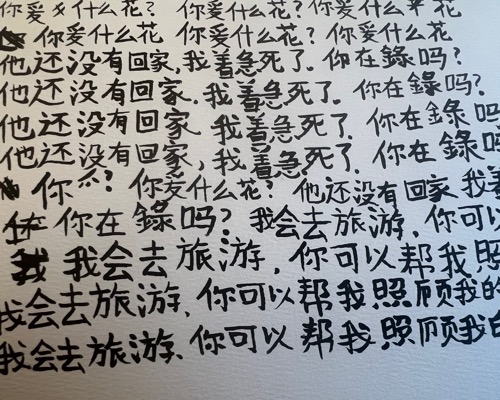 你爱 什么花? 你爱什么花? 你爱什么 花
你爱什么花 你爱什么花? 你爱什么花
他还没有回家,我着急死了. 你在錄吗?
他还没有回家.我着急死了. 你在錄吗?
他还没有回家 我着急死了. 你在錄吗
他还没有回家,我着急死了. 你在錄吗
你 ? 你爱什么花? 他还没有回家 我着
你在錄吗? 我会去旅游, 你可以
我 我会去旅游, 你可以帮我照
我会去旅游, 你可以帮我照顾我的
我会去旅游. 你可以帮我照顾我的